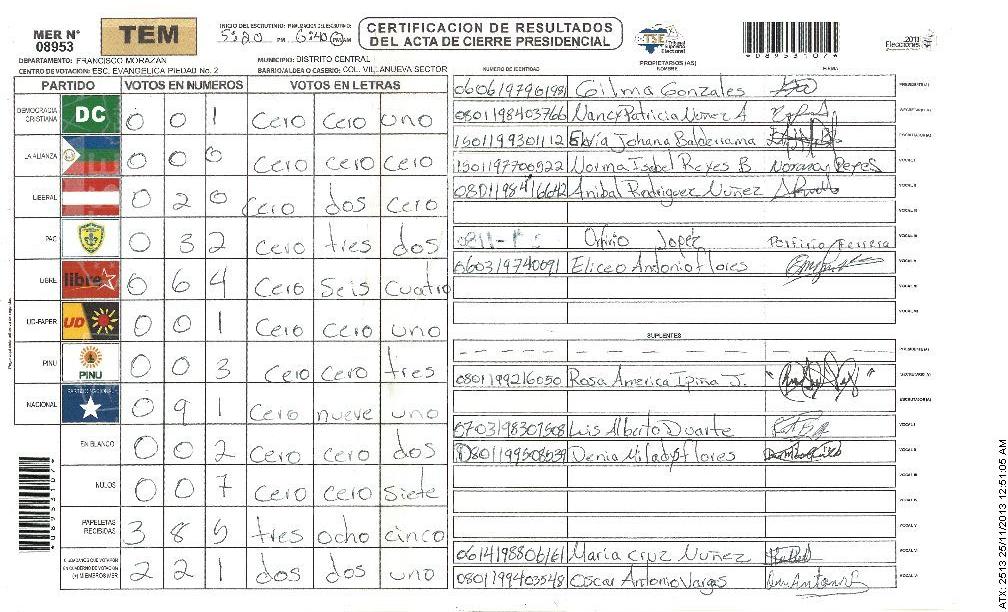 MER N° 08953
TEM
INICIO DEL ESCRUTINIO: FINALIZACION DEL ESCRUTINIO:
5:20 PM 6:40 PM
CERTIFICACION DE RESULTADOS
DEL ACTA DE CIERRE PRESIDENCIAL
TSE Tribunal Supremo Electoral
*08953107*
2013
Elecciones
DEPARTAMENTO: FRANCISCO MORAZAN MUNICIPIO: DISTRITO CENTRAL
CENTRO DE VOTACION: ESC. EVANGELICA PIEDAD No. 2 BARRIO/ALDEA O CASERIO: COL. VILLANUEVA SECTOR
PARTIDO VOTOS EN NUMEROS VOTOS EN LETRAS
DEMOCRACIA CRISTIANA DC 0 0 1 Cero Cero uno
LA ALIANZA 0 0 0 Cero cero Cero
LIBERAL 0 2 0 Cero dos Cero
PAC 0 3 2 Cero tres dos
LIBRE libre 0 6 4 Cero Seis cuatro
UD-FAPER UD 0 0 1 Cero Cero uno
PINU PINU 0 0 3 Cero Cero tres
NACIONAL 0 9 1 Cero nueve uno
EN BLANCO 0 0 2 Cero Cero dos
NULOS 0 0 7 Cero Cero Siete
PAPELETAS RECIBIDAS 3 8 5 tres ocho cinco
CIUDADANOS QUE VOTARON EN CUADERNO DE VOTACION (+) MIEMBROS MER 2 2 1 dos dos uno
*08953107*
PROPIETARIOS (AS)
NUMERO DE IDENTIDAD NOMBRE FIRMA
Gilma Gonzales PRESIDENTE (A)
0801198403766 Nancy Patricia Nuñez A SECRETARIO (A)
1501199301112 Elvia Johana Balderrama ESCRUTADOR (A)
1501197700522 Norma Isabel Reyes B Norma Reyes VOCAL I
Anibal Rodriguez Nuñez VOCAL II
VOCAL III
Lopez Porfirio Ferrera VOCAL IV
Eliceo Antonio flores VOCAL V
SUPLENTES
PRESIDENTE (A)
0801199216050 Rosa America Ipiña J. SECRETARIO (A)
ESCRUTADOR (A)
0703198301508 Luis Alberto Duarte VOCAL I
Denia Milady flores VOCAL II
VOCAL III
VOCAL IV
VOCAL V
Maria Cruz Nuñez
0801199403548 Oscar Antonio Vargas
ATX: 2513 25/11/2013 12:51:05 AM